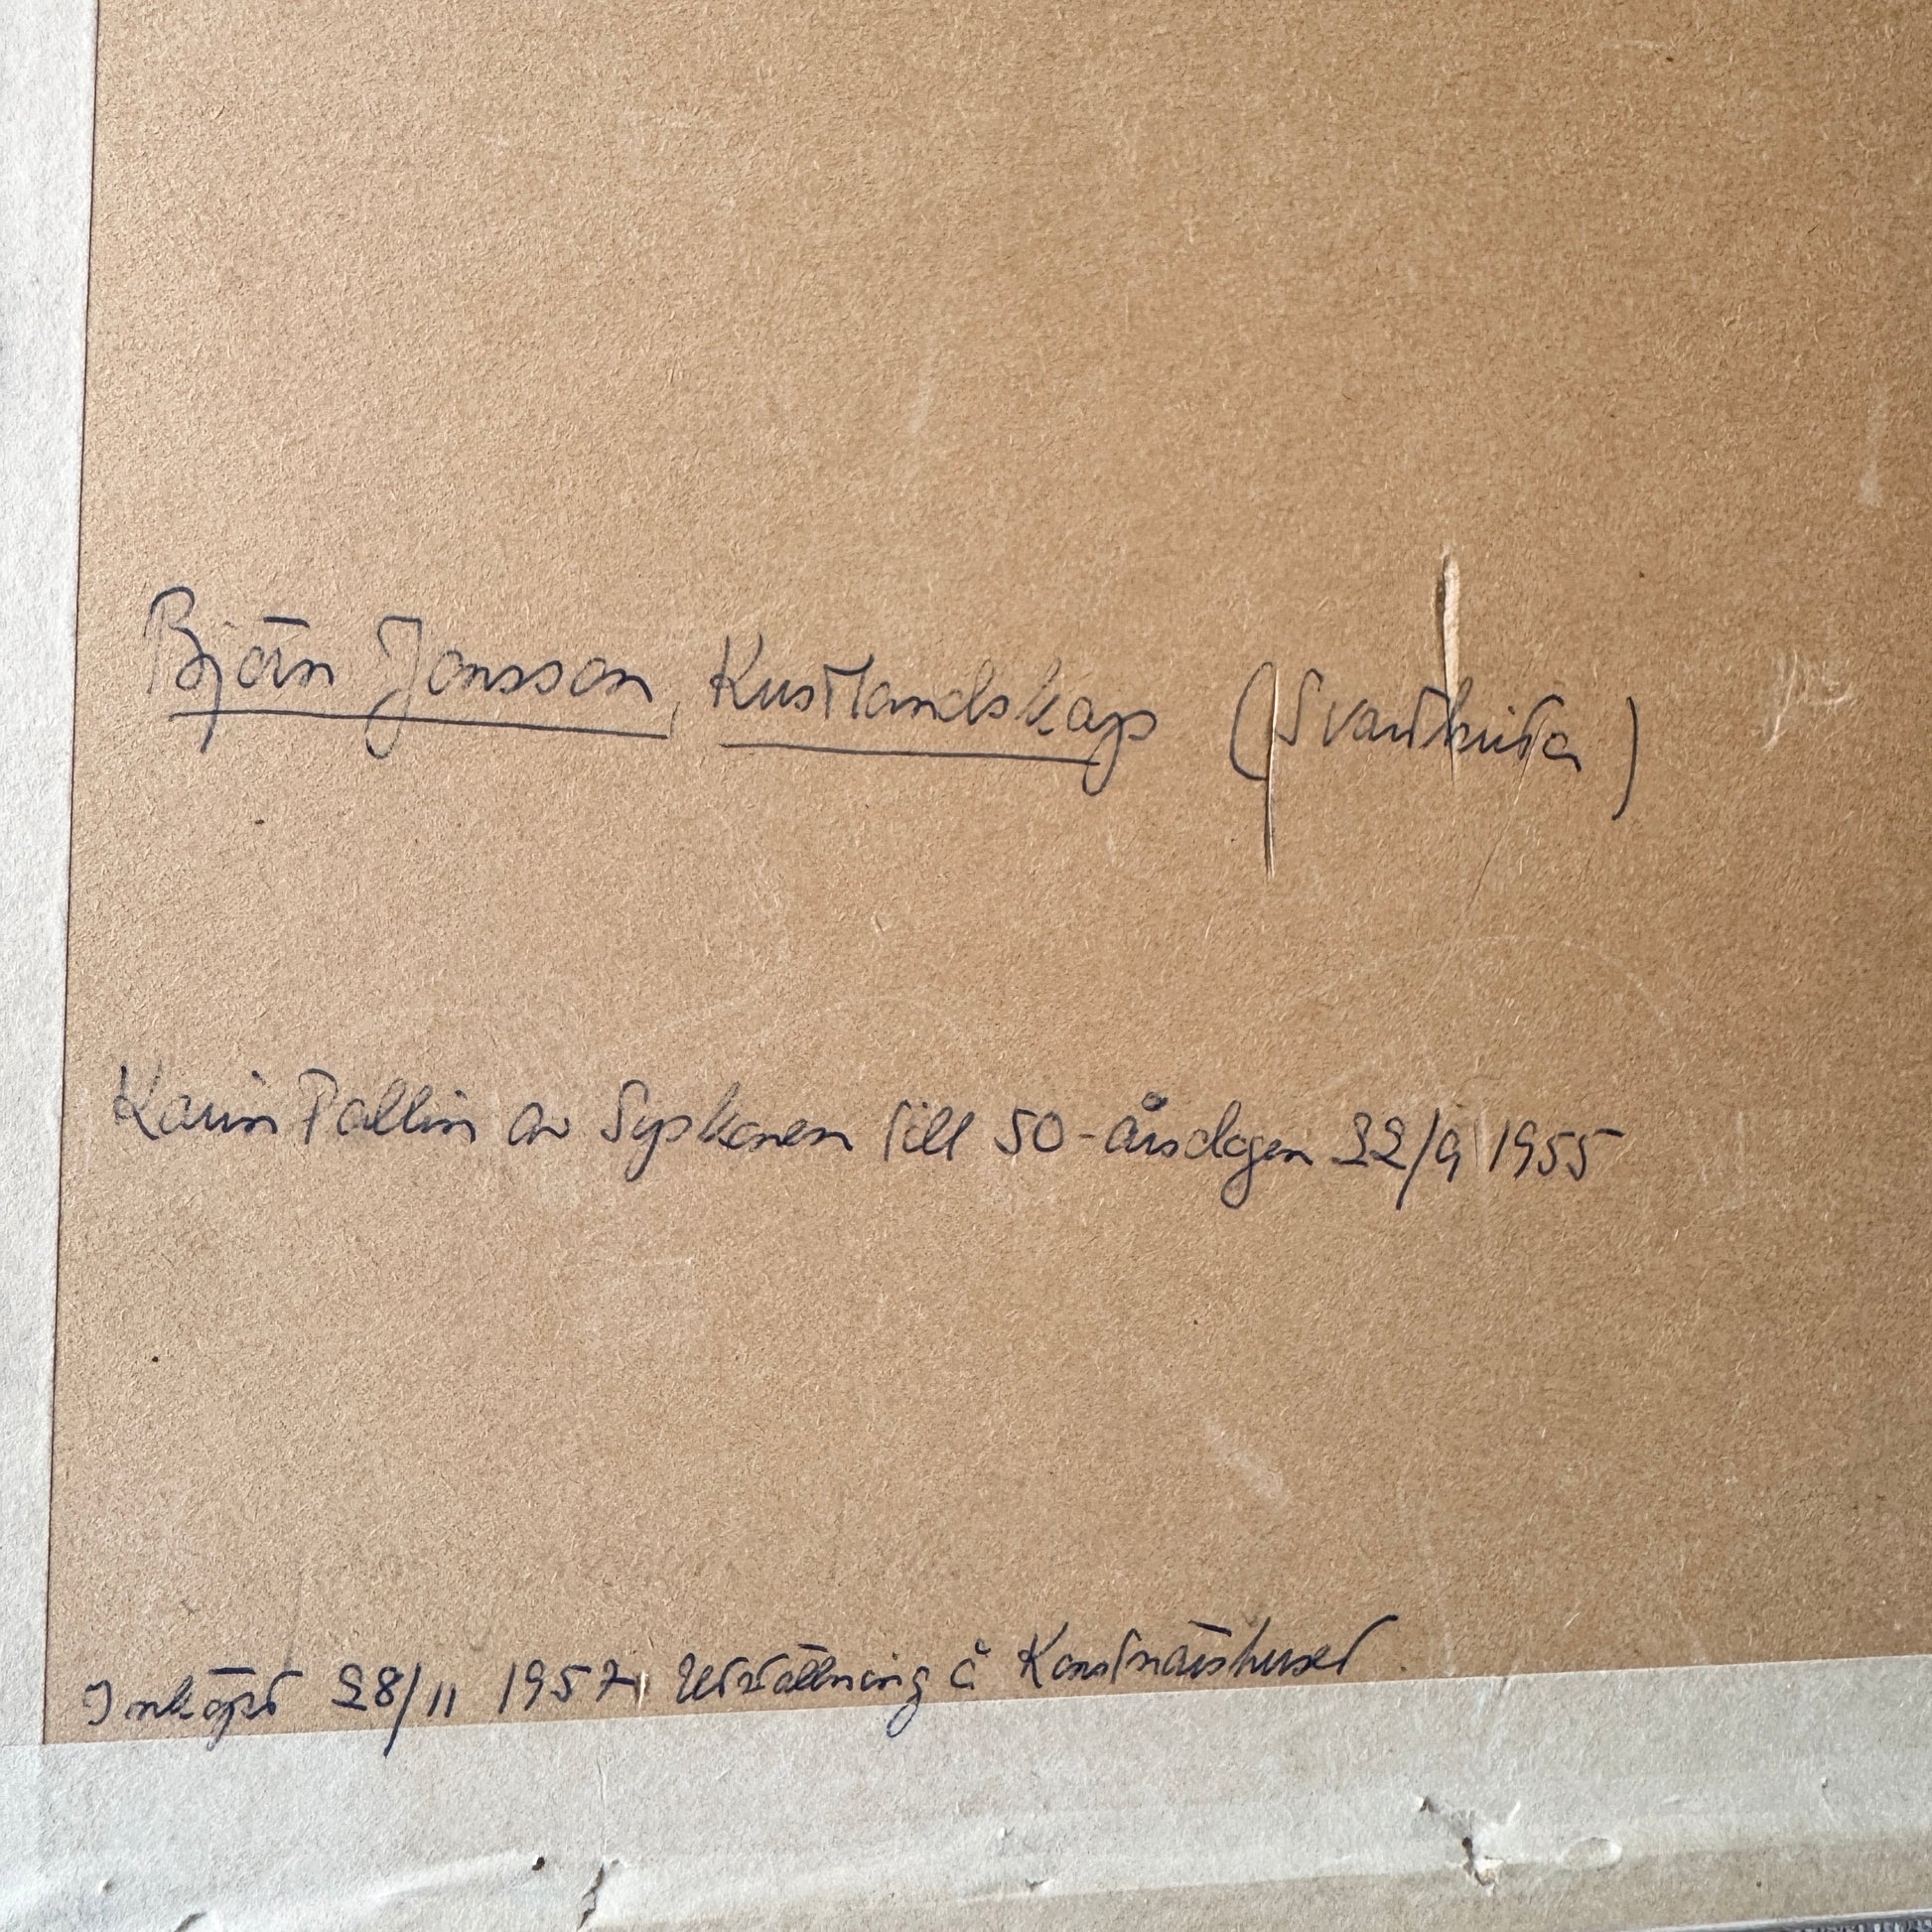 Björn Jonsson, Kustlandskap (Svartkrita)
Karin Pallin av Syskonen till 50-årsdagen 22/9 1955
Inköpt 28/11 1957 Utställning å Konstnärshuset